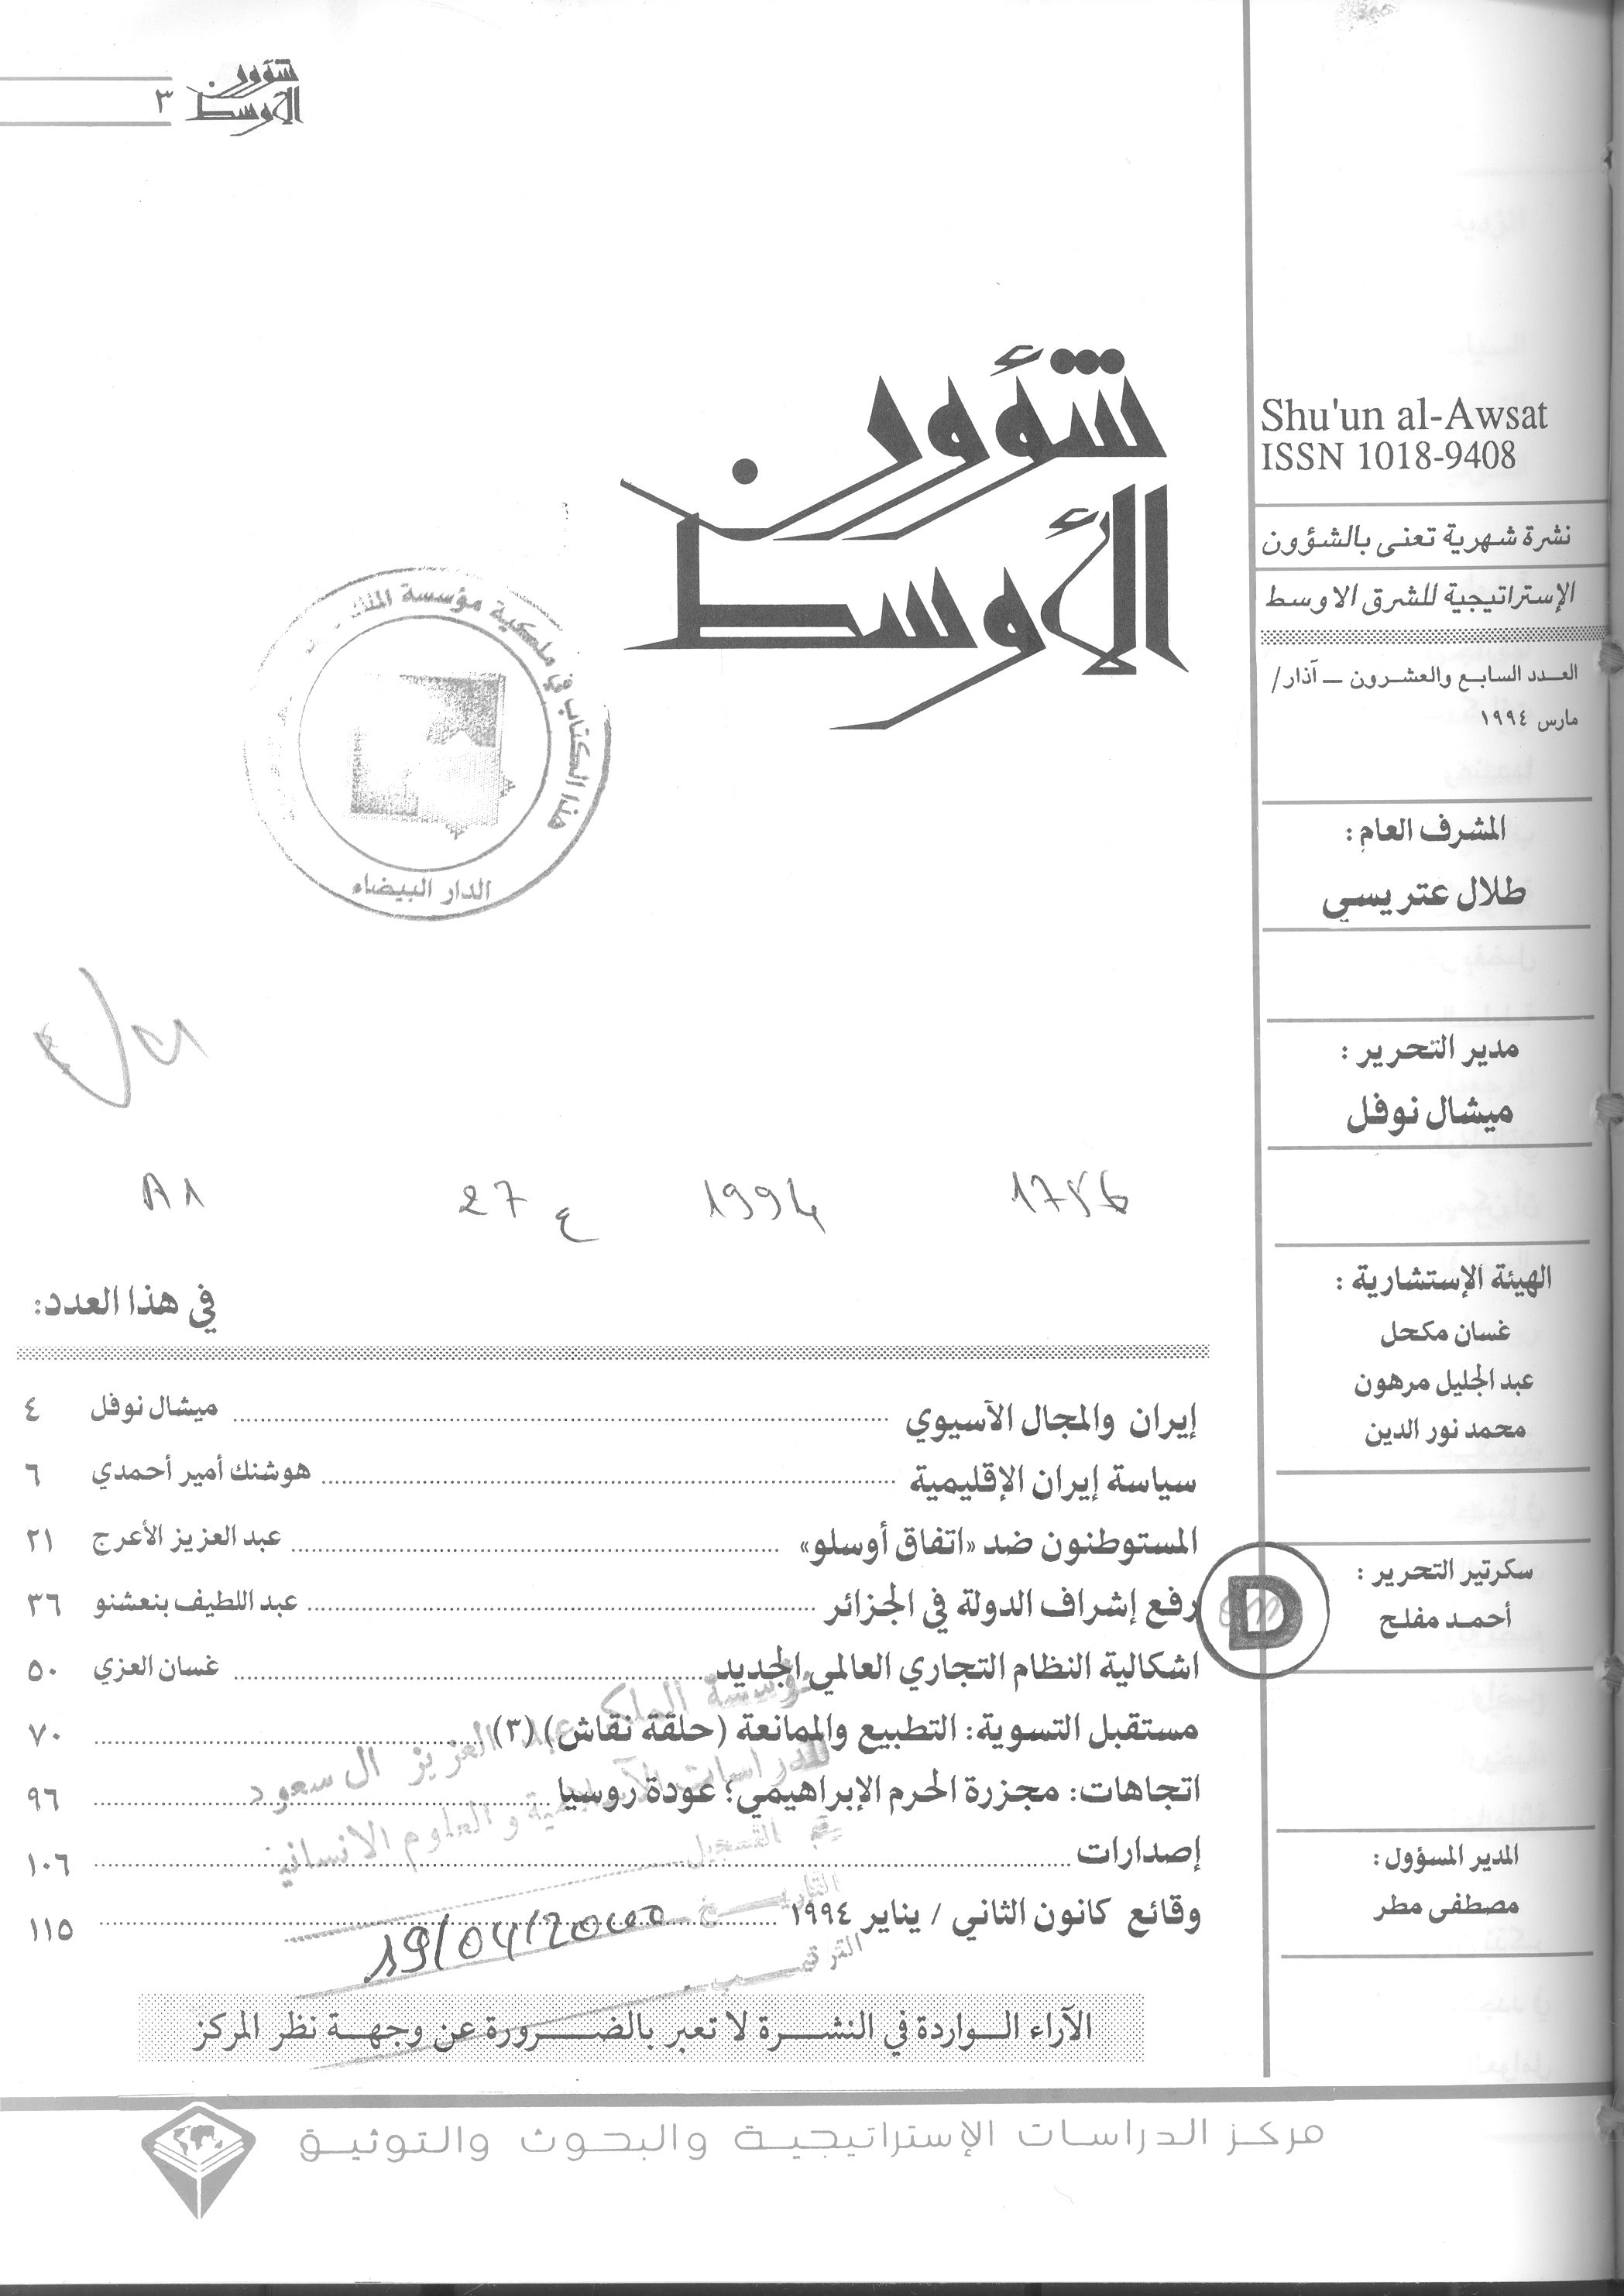 ٣
شؤون
الأوسط
شؤون
الأوسط
Shu'un al-Awsat
ISSN 1018-9408
نشرة شهرية تعنى بالشؤون
الإستراتيجية للشرق الاوسط
العدد السابع والعشرون – آذار/
مارس ١٩٩٤
المشرف العام :
طلال عتريسي
مدير التحرير :
ميشال نوفل
الهيئة الإستشارية :
غسان مكحل
عبد الجليل مرهون
محمد نور الدين
سكرتير التحرير :
أحمد مفلح
المدير المسؤول :
مصطفى مطر
هذا الكتاب في ملكية مؤسسة الملك
الدار البيضاء
A1 27 ع 1994
في هذا العدد:
إيران والمجال الآسيوي ........ ميشال نوفل ٤
سياسة إيران الإقليمية ........ هوشنك أمير أحمدي ٦
المستوطنون ضد «اتفاق أوسلو» ........ عبد العزيز الأعرج ٢١
رفع إشراف الدولة في الجزائر ........ عبد اللطيف بنعشنو ٣٦
اشكالية النظام التجاري العالمي الجديد ........ غسان العزي ٥٠
مستقبل التسوية: التطبيع والممانعة (حلقة نقاش) (٣) ........ ٧٠
اتجاهات: مجزرة الحرم الإبراهيمي؛ عودة روسيا ........ ٩٦
إصدارات ........ ١٠٦
وقائع كانون الثاني / يناير ١٩٩٤ ........ ١١٥
D
مؤسسة الملك عبد العزيز ال سعود
للدراسات الاسلامية والعلوم الانسانية
رقم التسجيل
التاريخ 19/04/2000
الترتيب
الآراء الواردة في النشرة لا تعبر بالضرورة عن وجهة نظر المركز
مركز الدراسات الإستراتيجية والبحوث والتوثيق